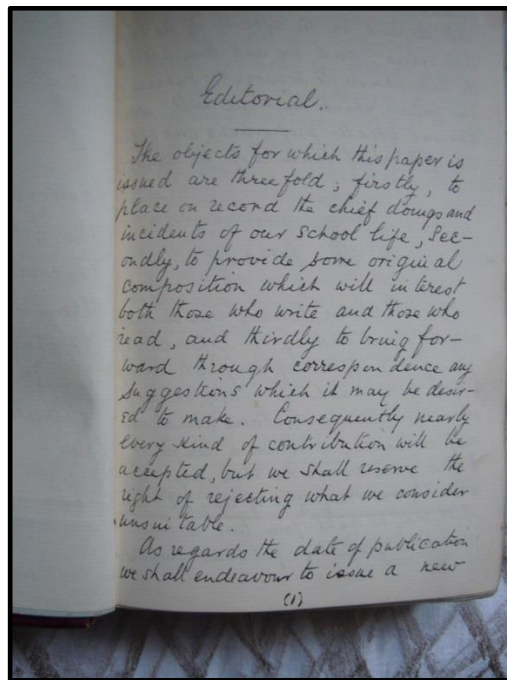 Editorial.
The objects for which this paper is
issued are threefold; firstly, to
place on record the chief doings and
incidents of our school life, Sec-
ondly, to provide some original
composition which will interest
both those who write and those who
read, and thirdly to bring for-
ward through correspondence any
suggestions which it may be desir-
ed to make. Consequently nearly
every kind of contribution will be
accepted, but we shall reserve the
right of rejecting what we consider
unsuitable.
As regards the date of publication
we shall endeavour to issue a new
(1)